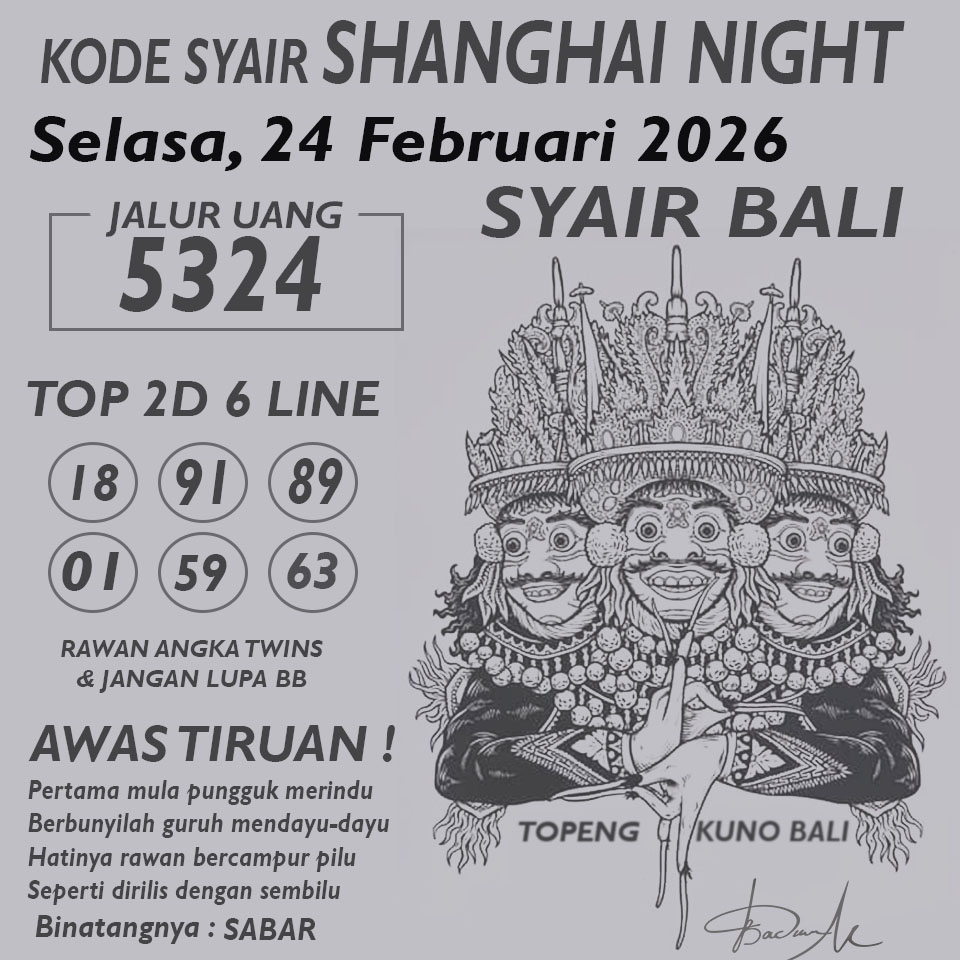 KODE SYAIR SHANGHAI NIGHT
Selasa, 24 Februari 2026
SYAIR BALI
JALUR UANG
5324
TOP 2D 6 LINE
18 91 89
01 59 63
RAWAN ANGKA TWINS
& JANGAN LUPA BB
AWAS TIRUAN !
Pertama mula pungguk merindu
Berbunyilah guruh mendayu-dayu
Hatinya rawan bercampur pilu
Seperti dirilis dengan sembilu
Binatangnya : SABAR
TOPENG KUNO BALI